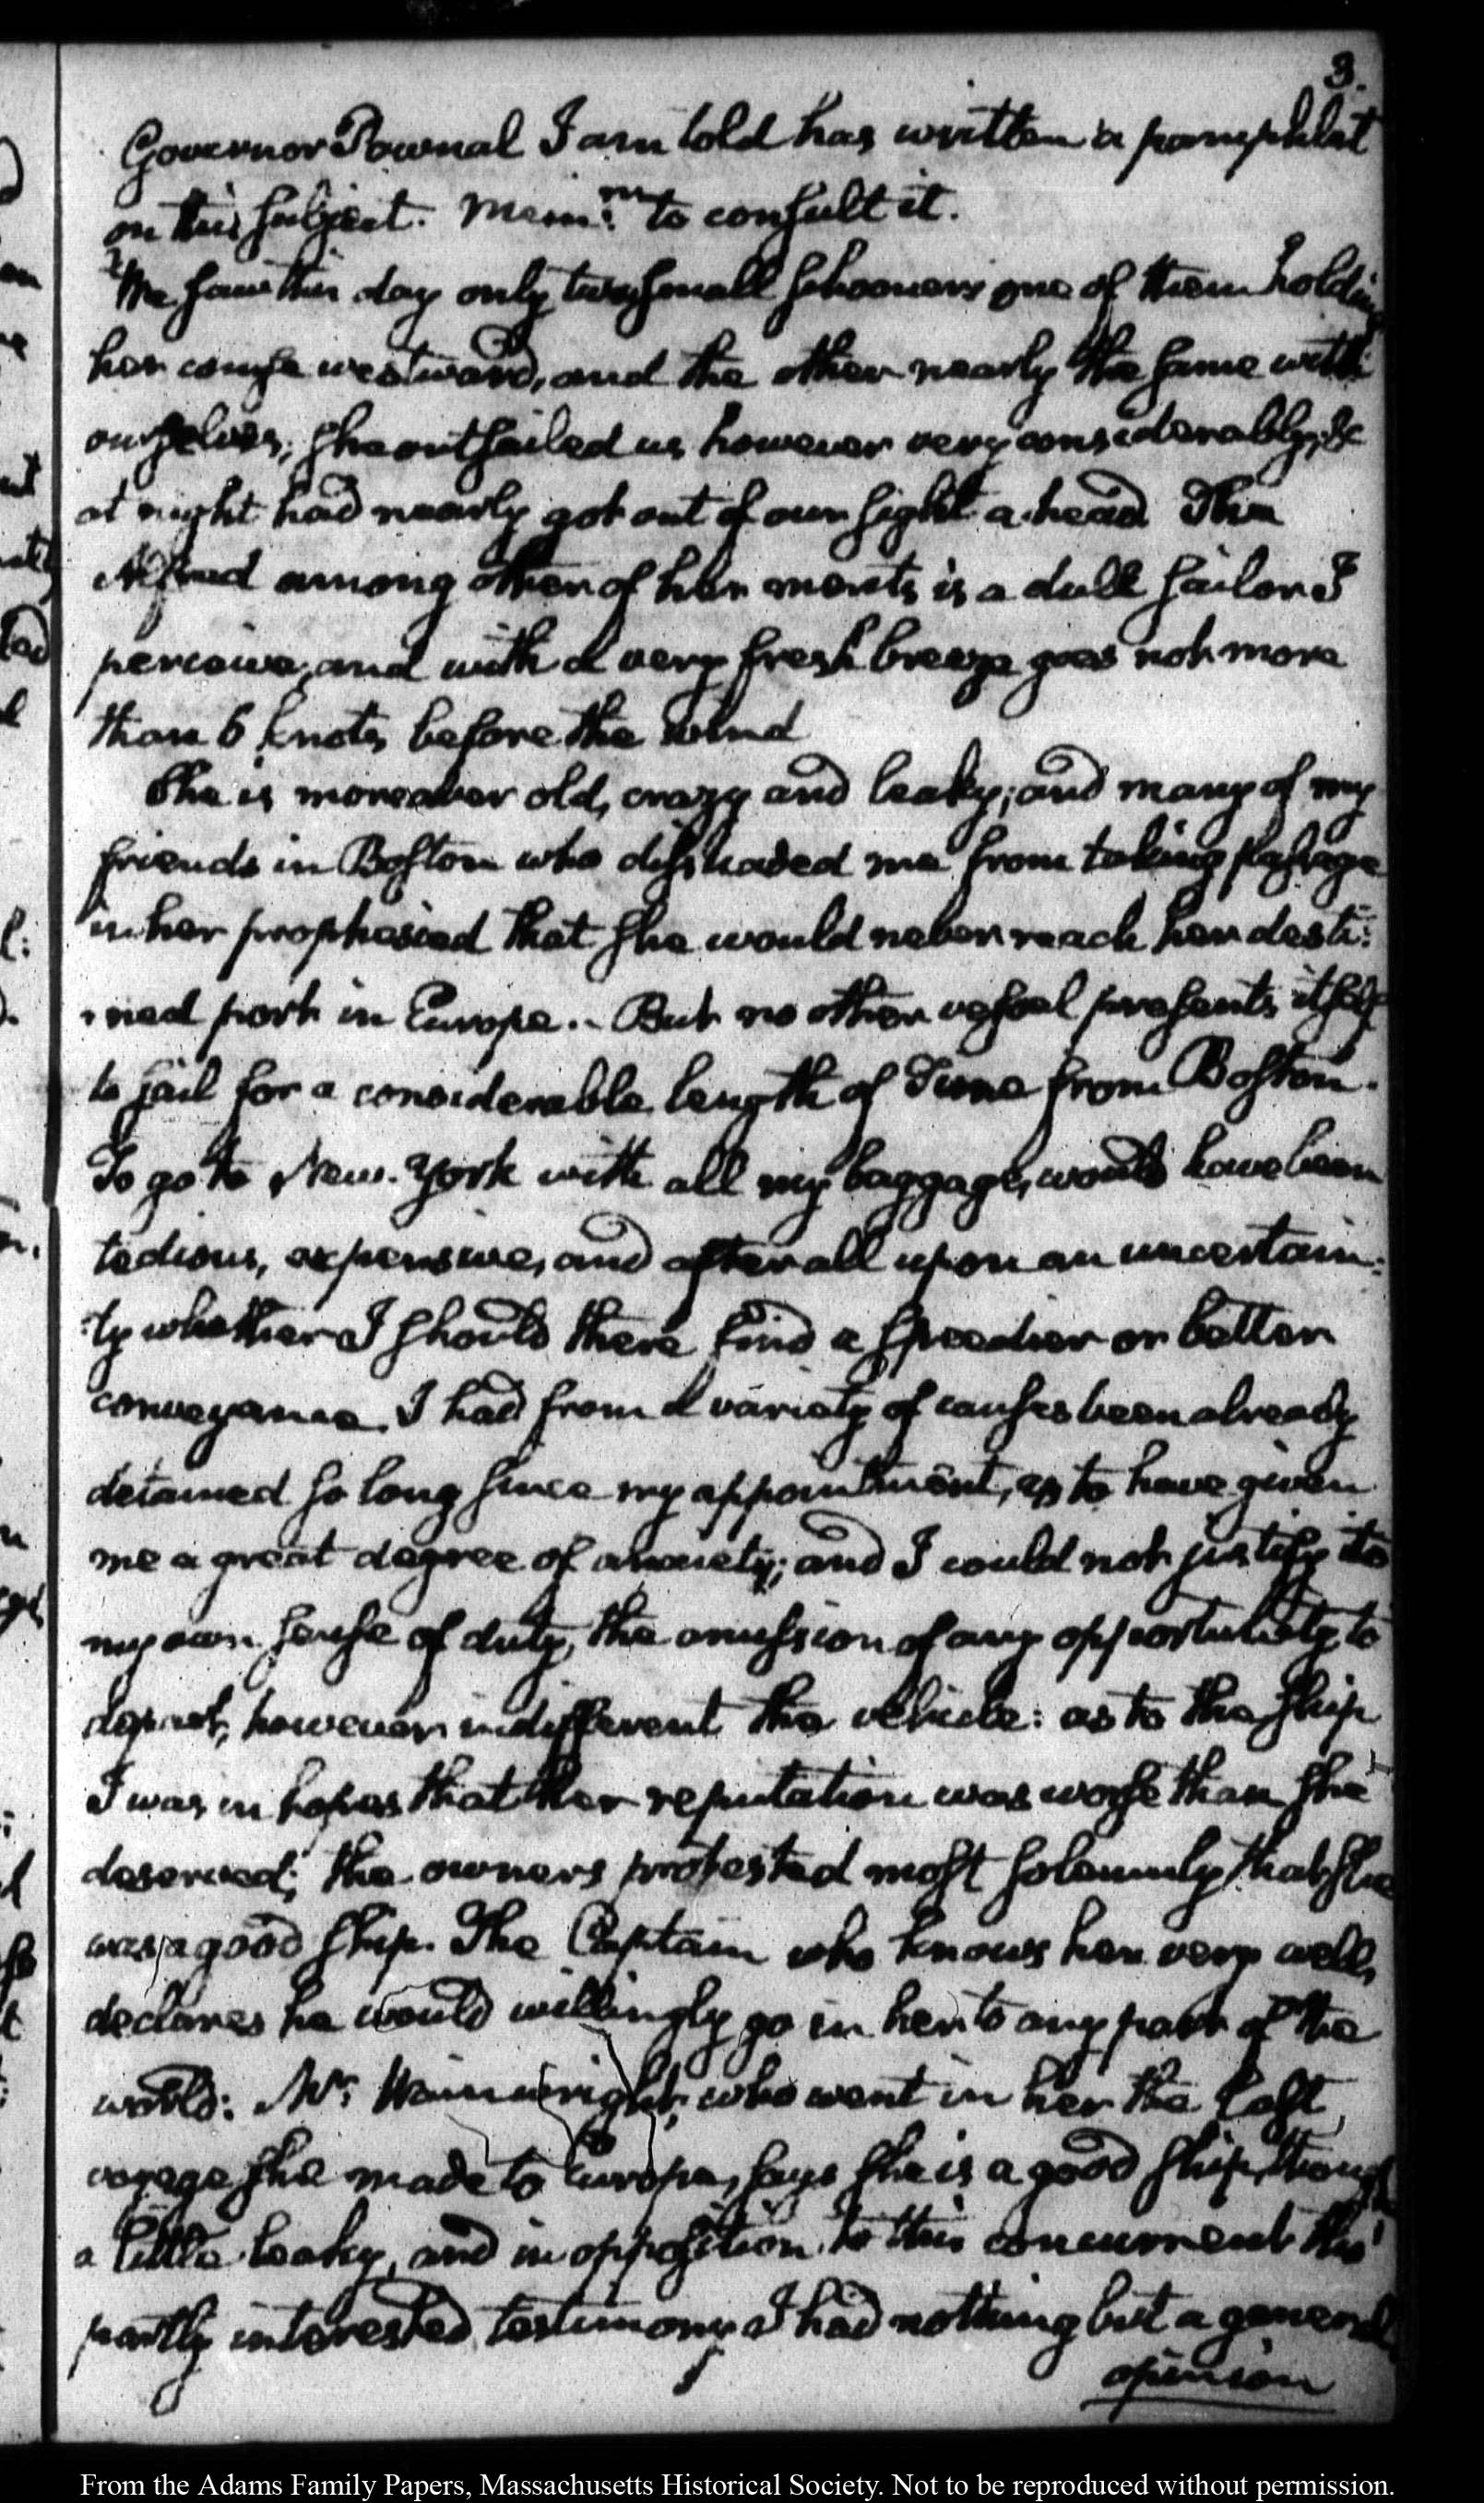 3.
Governor Pownal I am told has written a pamphlet
on this subject. Mem:m to consult it.
We saw this day only two small schooners one of them holding
her course westward, and the other nearly the same with
ourselves; she outsailed us however very considerably, &
at night had nearly got out of our sight a-head The
Alfred among other of her merits is a dull sailor I
perceive, and with a very fresh breeze goes not more
than 6 knots before the wind
She is moreover old, crazy and leaky; and many of my
friends in Boston who dissuaded me from taking passage
in her prophesied that she would never reach her desti:
:ned port in Europe.. But no other vessel presents itself
to sail for a considerable length of Time from Boston.
To go to New-York with all my baggage, would have been
tedious, expensive, and after all upon an uncertain:
:ty whether I should there find a speedier or better
conveyance. I had from a variety of causes been already
detained so long since my appointment, as to have given
me a great degree of anxiety; and I could not justify to
my own sense of duty, the omission of any opportunity to
depart, however indifferent the vehicle: as to the ship
I was in hopes that her reputation was worse than she
deserved; the owners protested most solemnly that she
was a good ship. The Captain who knows her very well,
declares he would willingly go in her to any part of the
world: Mr Wainwright, who went in her the last
voyage she made to Europe, says she is a good ship, though
a little leaky, and in opposition to this concurrent tho'
partly interested testimony I had nothing but a general
opinion
From the Adams Family Papers, Massachusetts Historical Society. Not to be reproduced without permission.